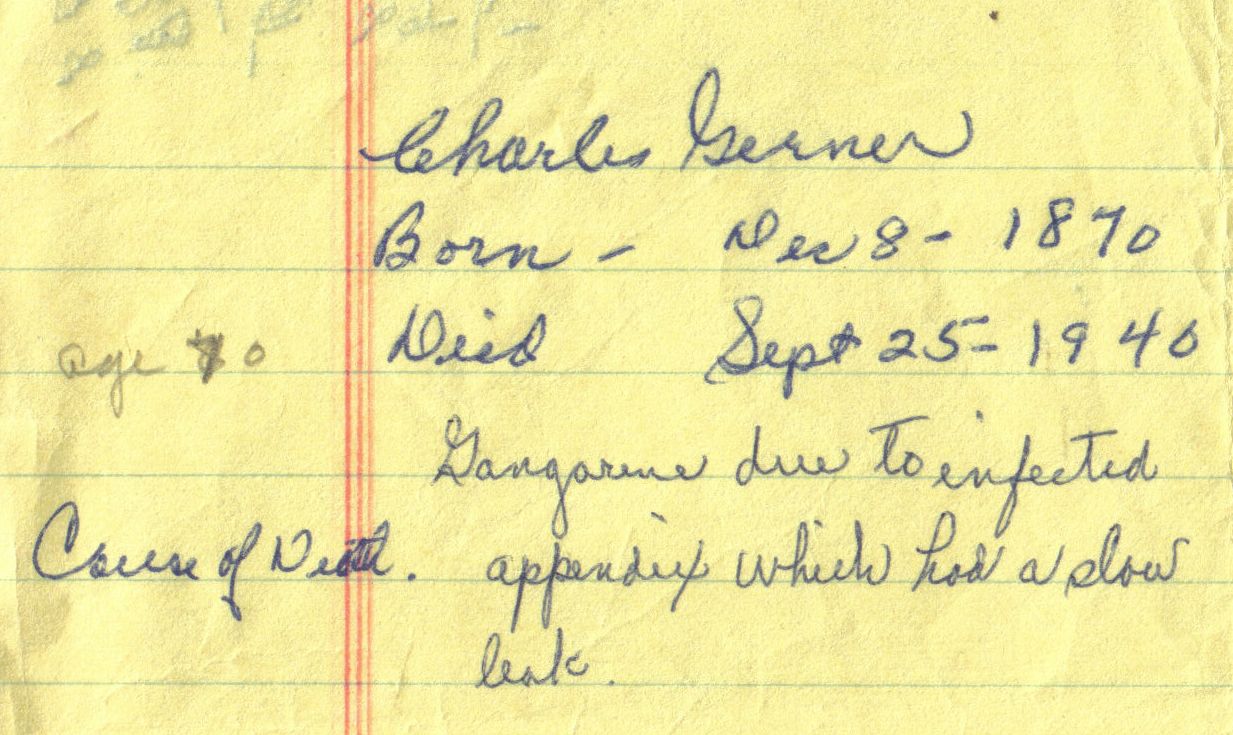 Charles Gerner
Born - Dec 8 - 1870
age 70 Died Sept 25 - 1940
Gangarene due to infected
Cause of Death. appendix which had a slow
leak.